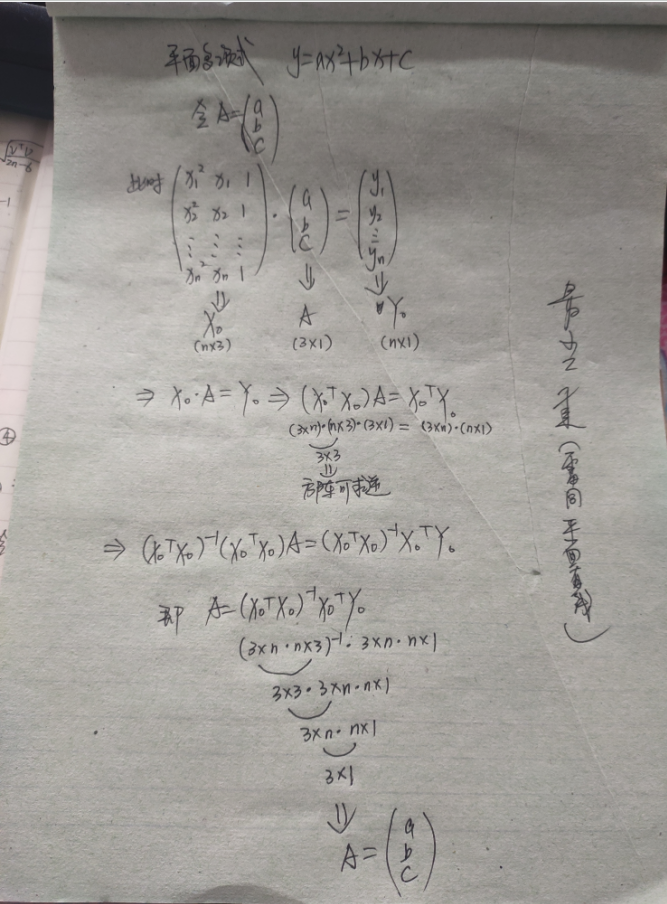 平面多项式 y=ax²+bx+c
令 A=(a b c)
此时 (x₁² x₁ 1 x₂² x₂ 1 ⋮ ⋮ ⋮ xₙ² xₙ 1) · (a b c) = (y₁ y₂ ⋮ yₙ)
⇓ ⇓ ⇓
X₀ A Y₀
(n×3) (3×1) (n×1)
⇒ X₀·A=Y₀ ⇒ (X₀ᵀX₀)A=X₀ᵀY₀
(3×n)·(n×3)·(3×1)=(3×n)·(n×1)
3×3
⇓
方阵可求逆
⇒ (X₀ᵀX₀)⁻¹(X₀ᵀX₀)A=(X₀ᵀX₀)⁻¹X₀ᵀY₀
即 A=(X₀ᵀX₀)⁻¹X₀ᵀY₀
(3×n·n×3)⁻¹·3×n·n×1
3×3·3×n·n×1
3×n·n×1
3×1
⇓
A=(a b c)
最小二乘(雷同平面直线)
2n-6
-1
④